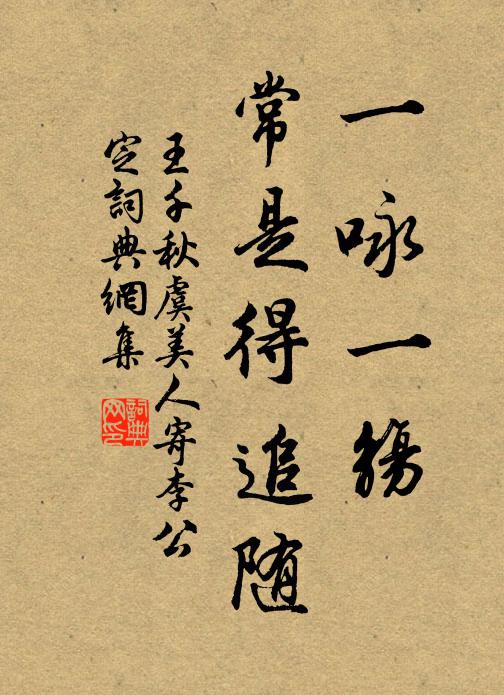 一咏一觞
常是得追随
王千秋虞美人寄李公
定詞典網集
詞典網印